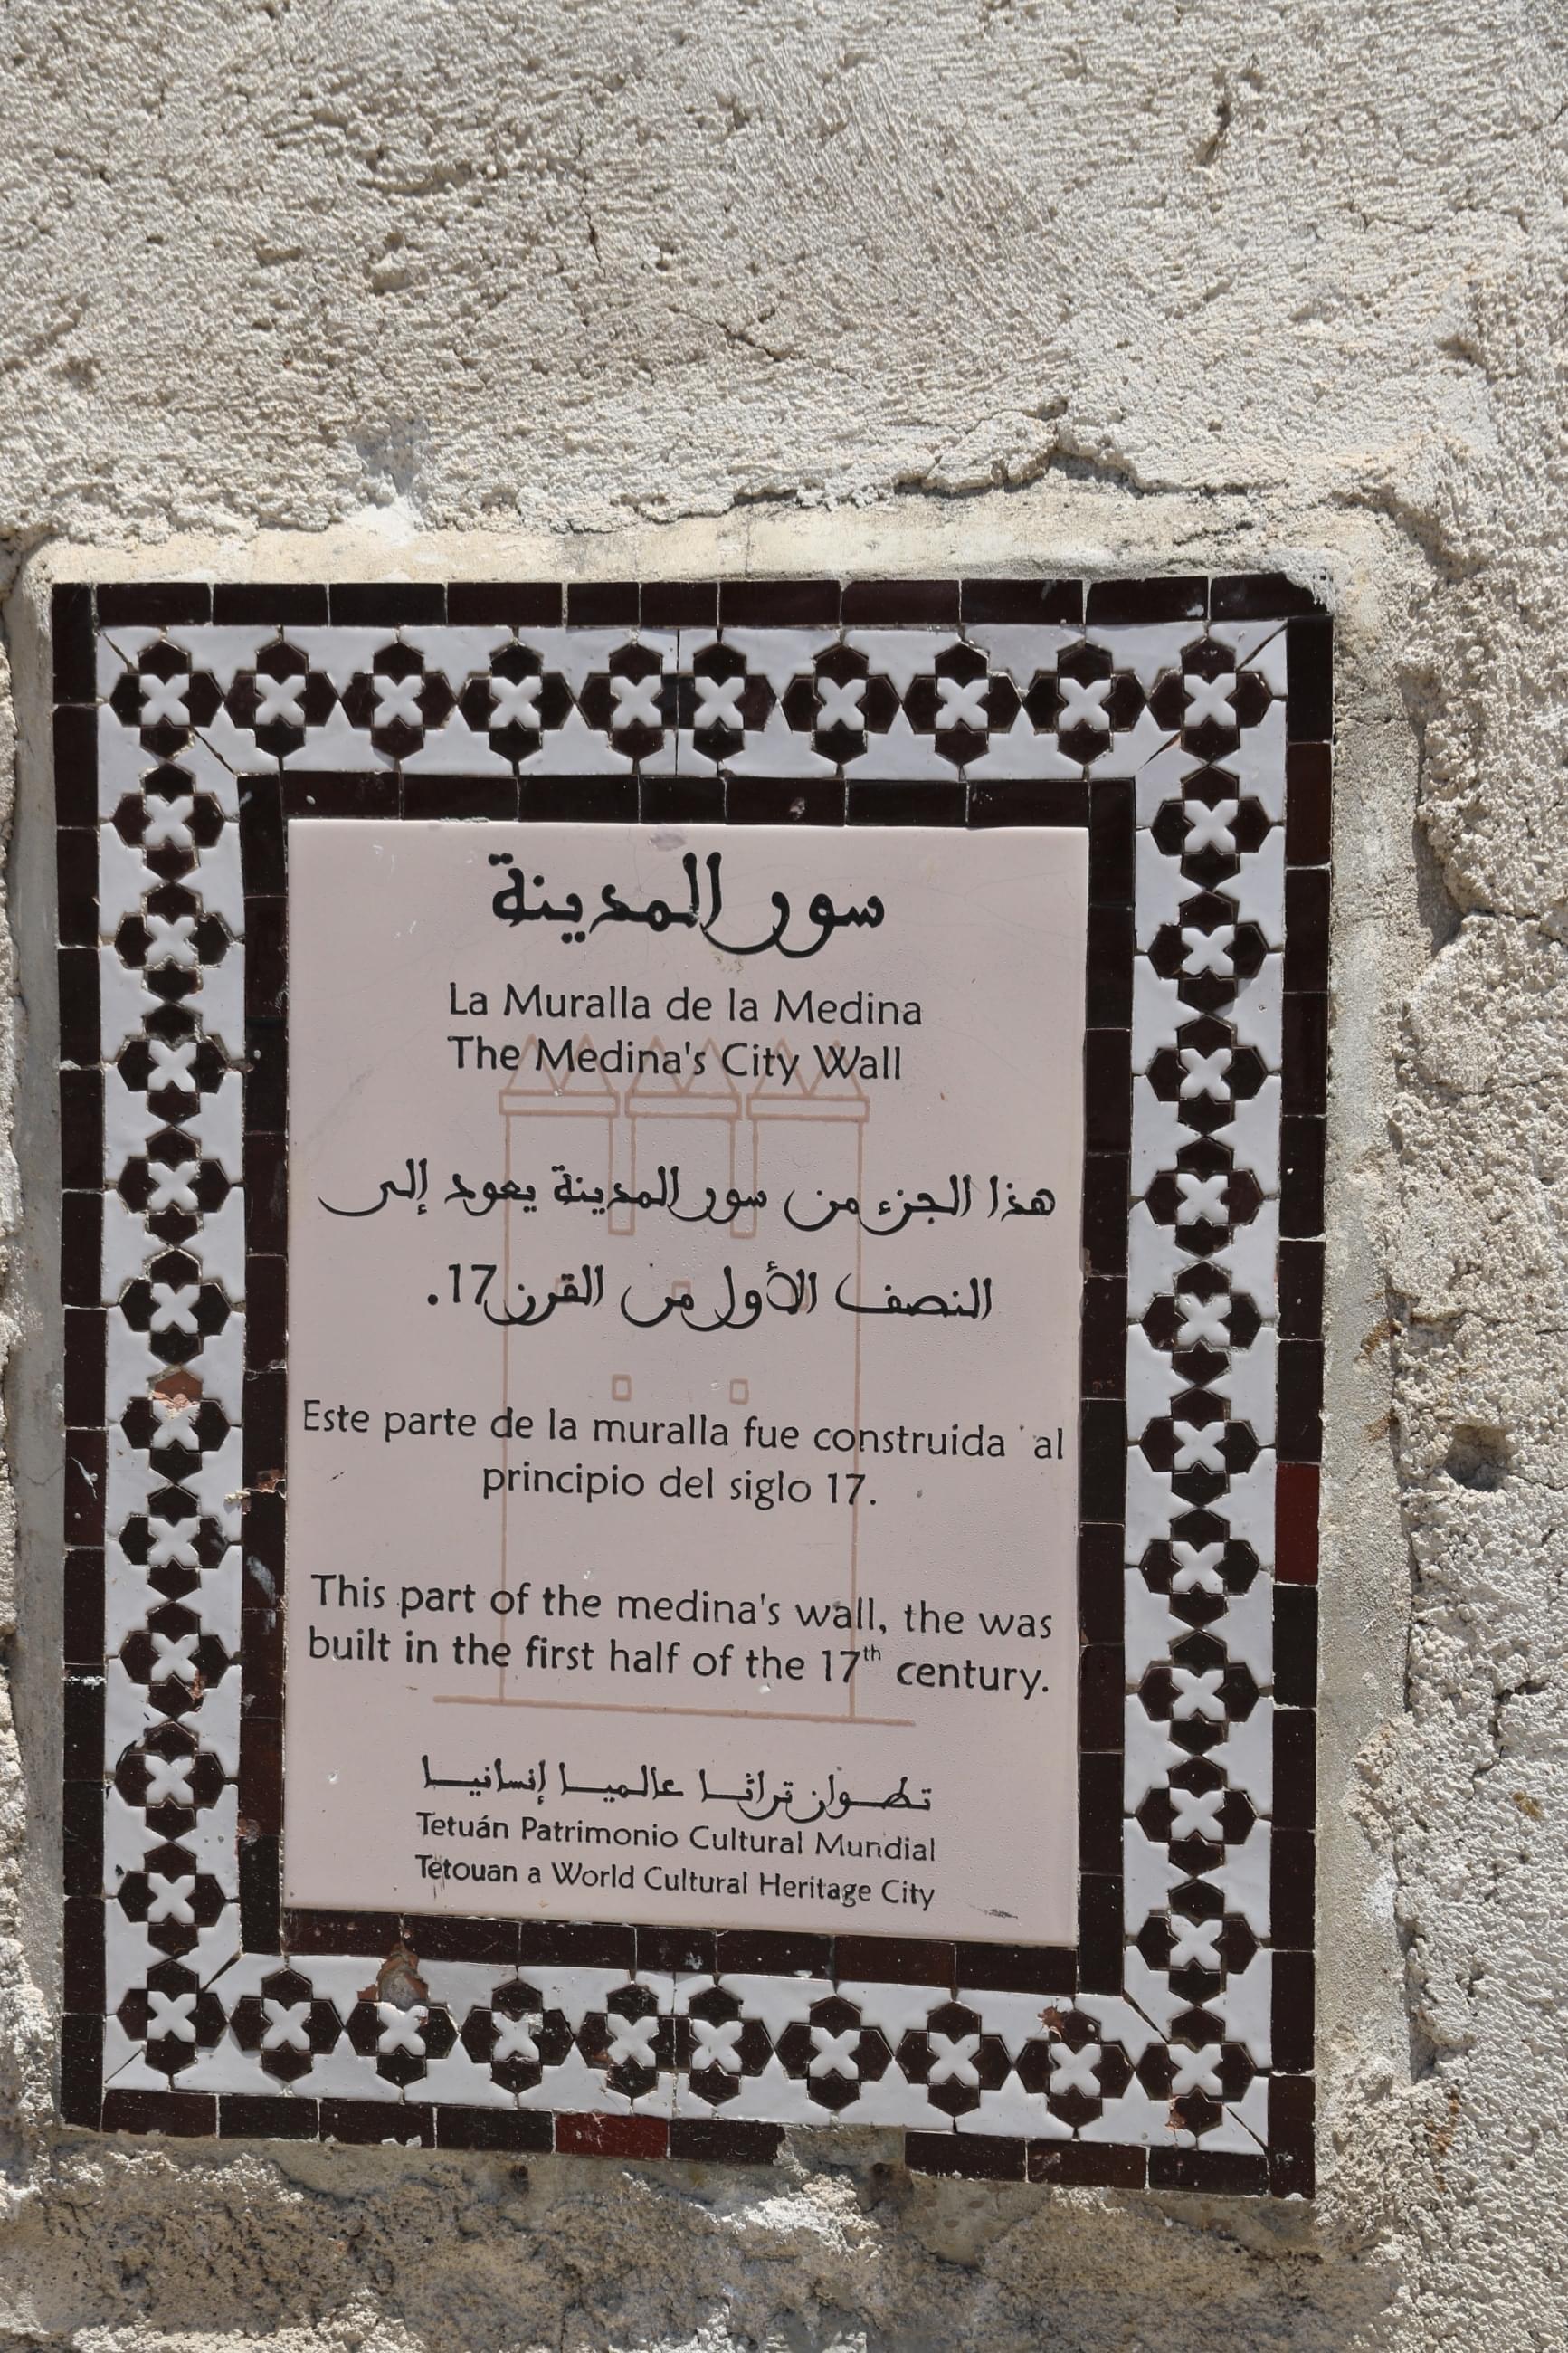 سور المدينة
La Muralla de la Medina
The Medina's City Wall
هذا الجزء من سور المدينة يعود إلى
النصف الأول من القرن 17.
Este parte de la muralla fue construida al
principio del siglo 17.
This part of the medina's wall, the was
built in the first half of the 17th century.
تطوان تراثا عالميا إنسانيا
Tetuán Patrimonio Cultural Mundial
Tetouan a World Cultural Heritage City